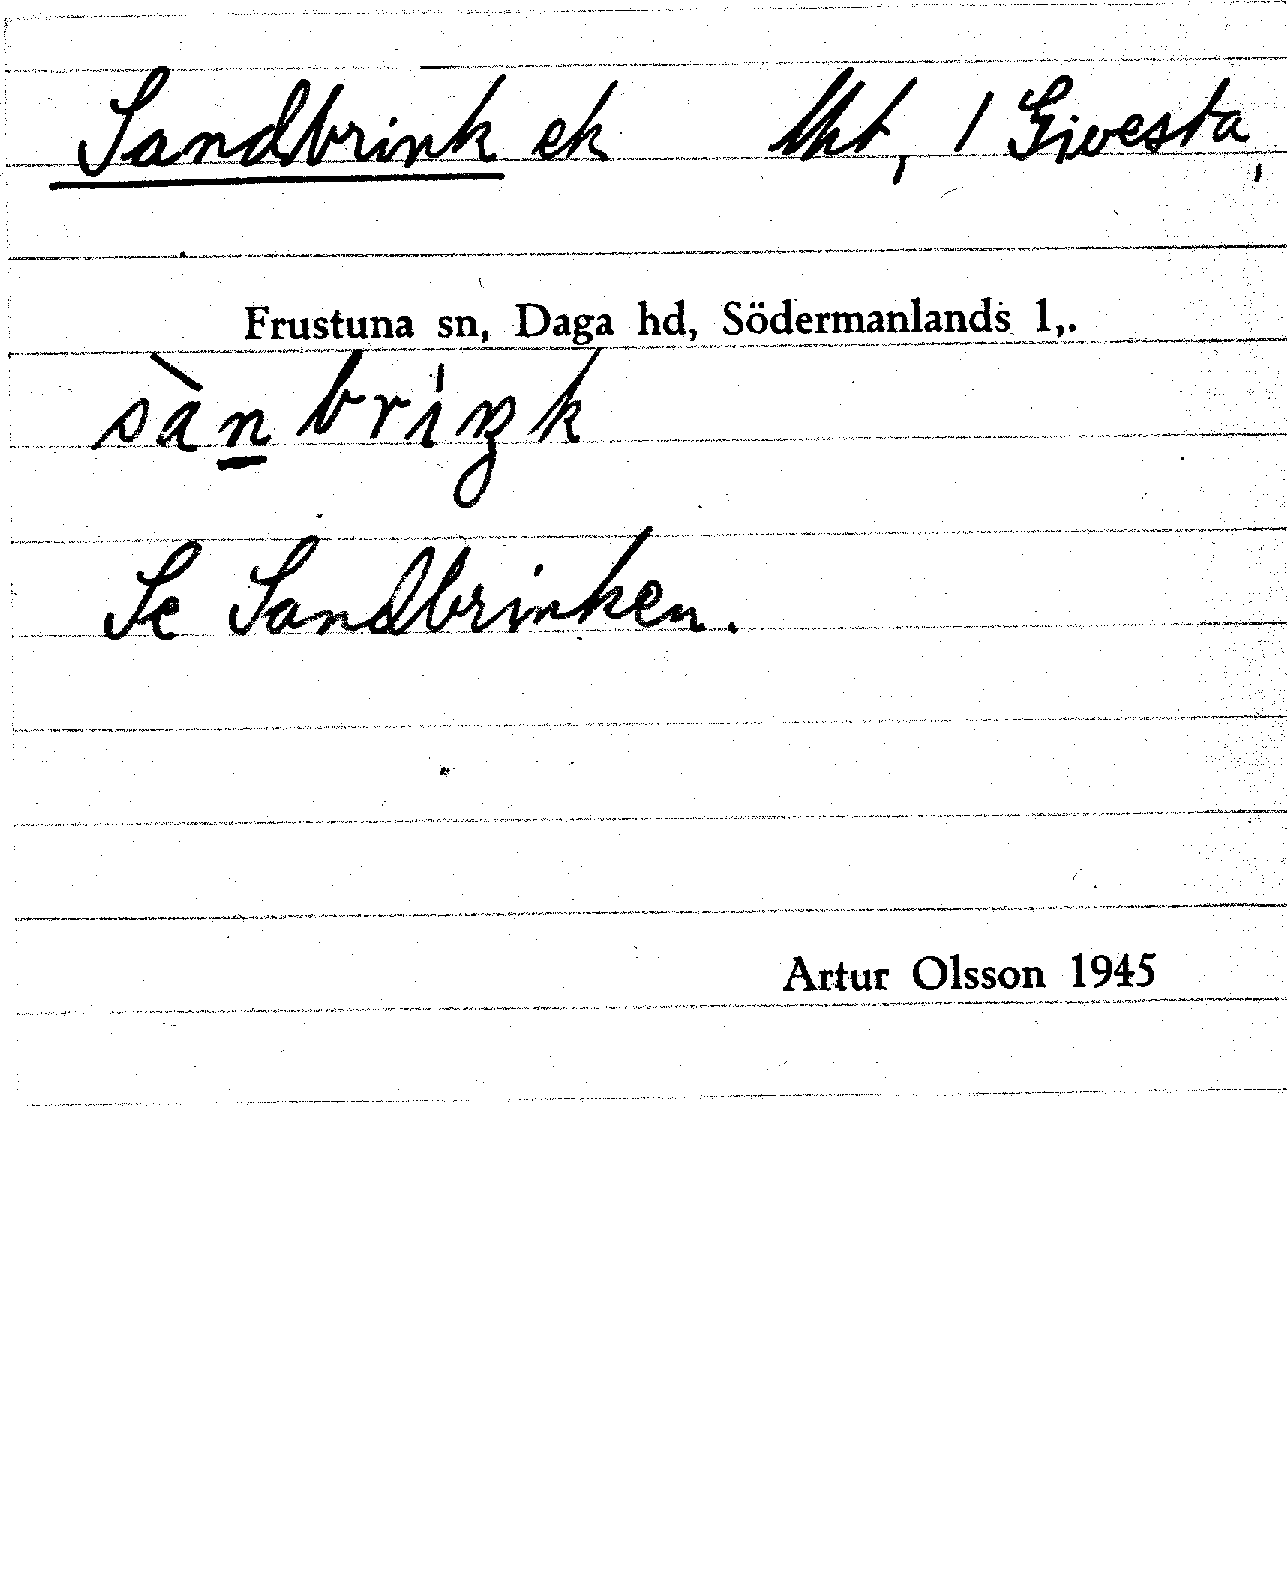 Sandbrink ek lht, 1 Givesta,
Frustuna sn, Daga hd, Södermanlands l,.
sànbriŋk
Se Sandbrinken.
Artur Olsson 1945